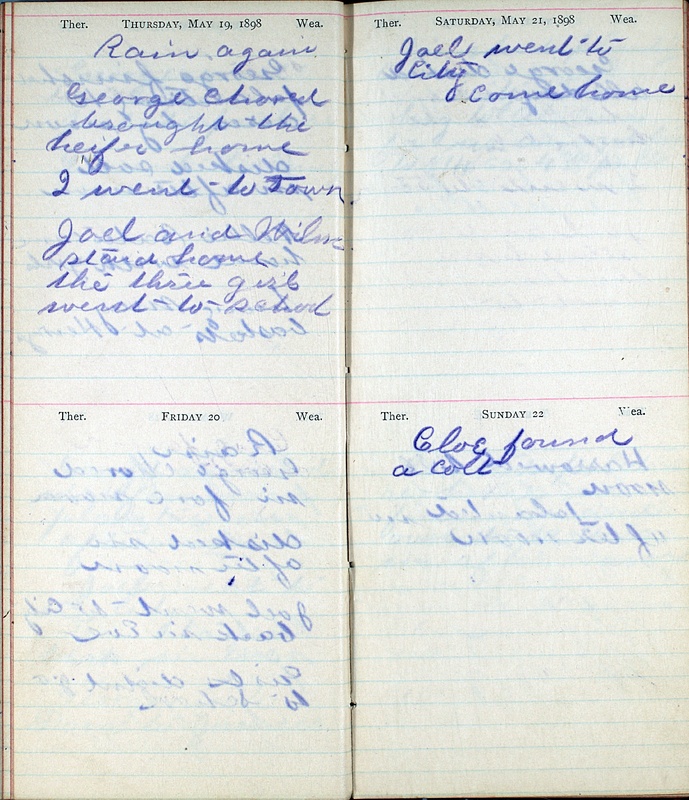 Ther. THURSDAY, MAY 19, 1898 Wea.
Rain again
George Chored
brought the
heifer home
I went to Town
Joel and
staid home
the three girls
went to school
Ther. FRIDAY 20 Wea.
Ther. SATURDAY, MAY 21, 1898 Wea.
Joel went to
City
& come home
Ther. SUNDAY 22 Wea.
Cloe found
a colt